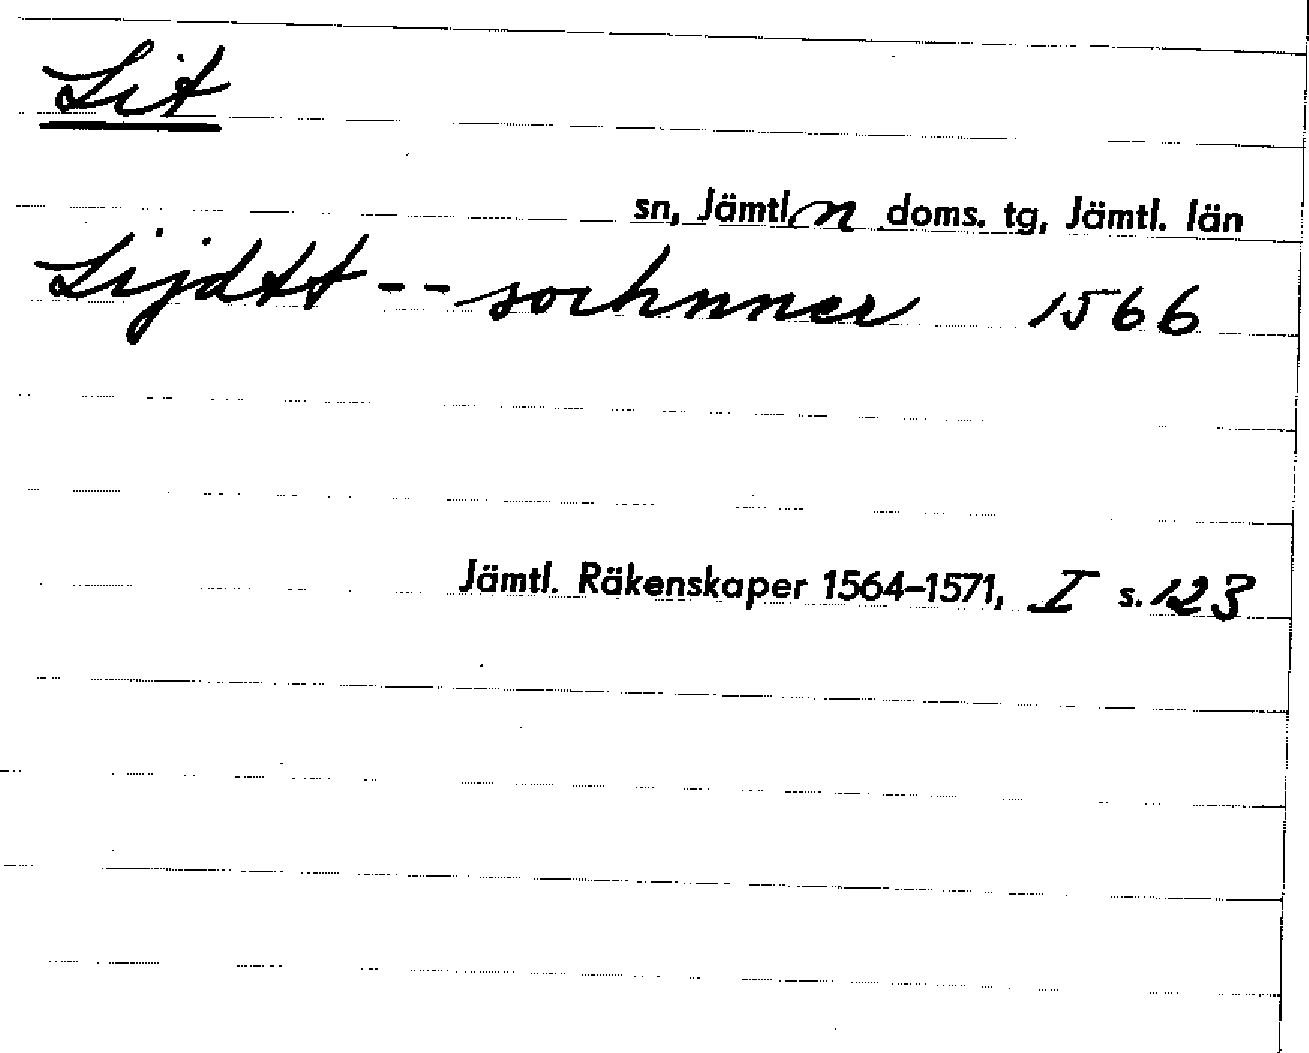 Lit
sn, Jämtl. n doms. tg, Jämtl. län
Lijdtt -- sochnner 1566
Jämtl. Räkenskaper 1564–1571, I s. 123